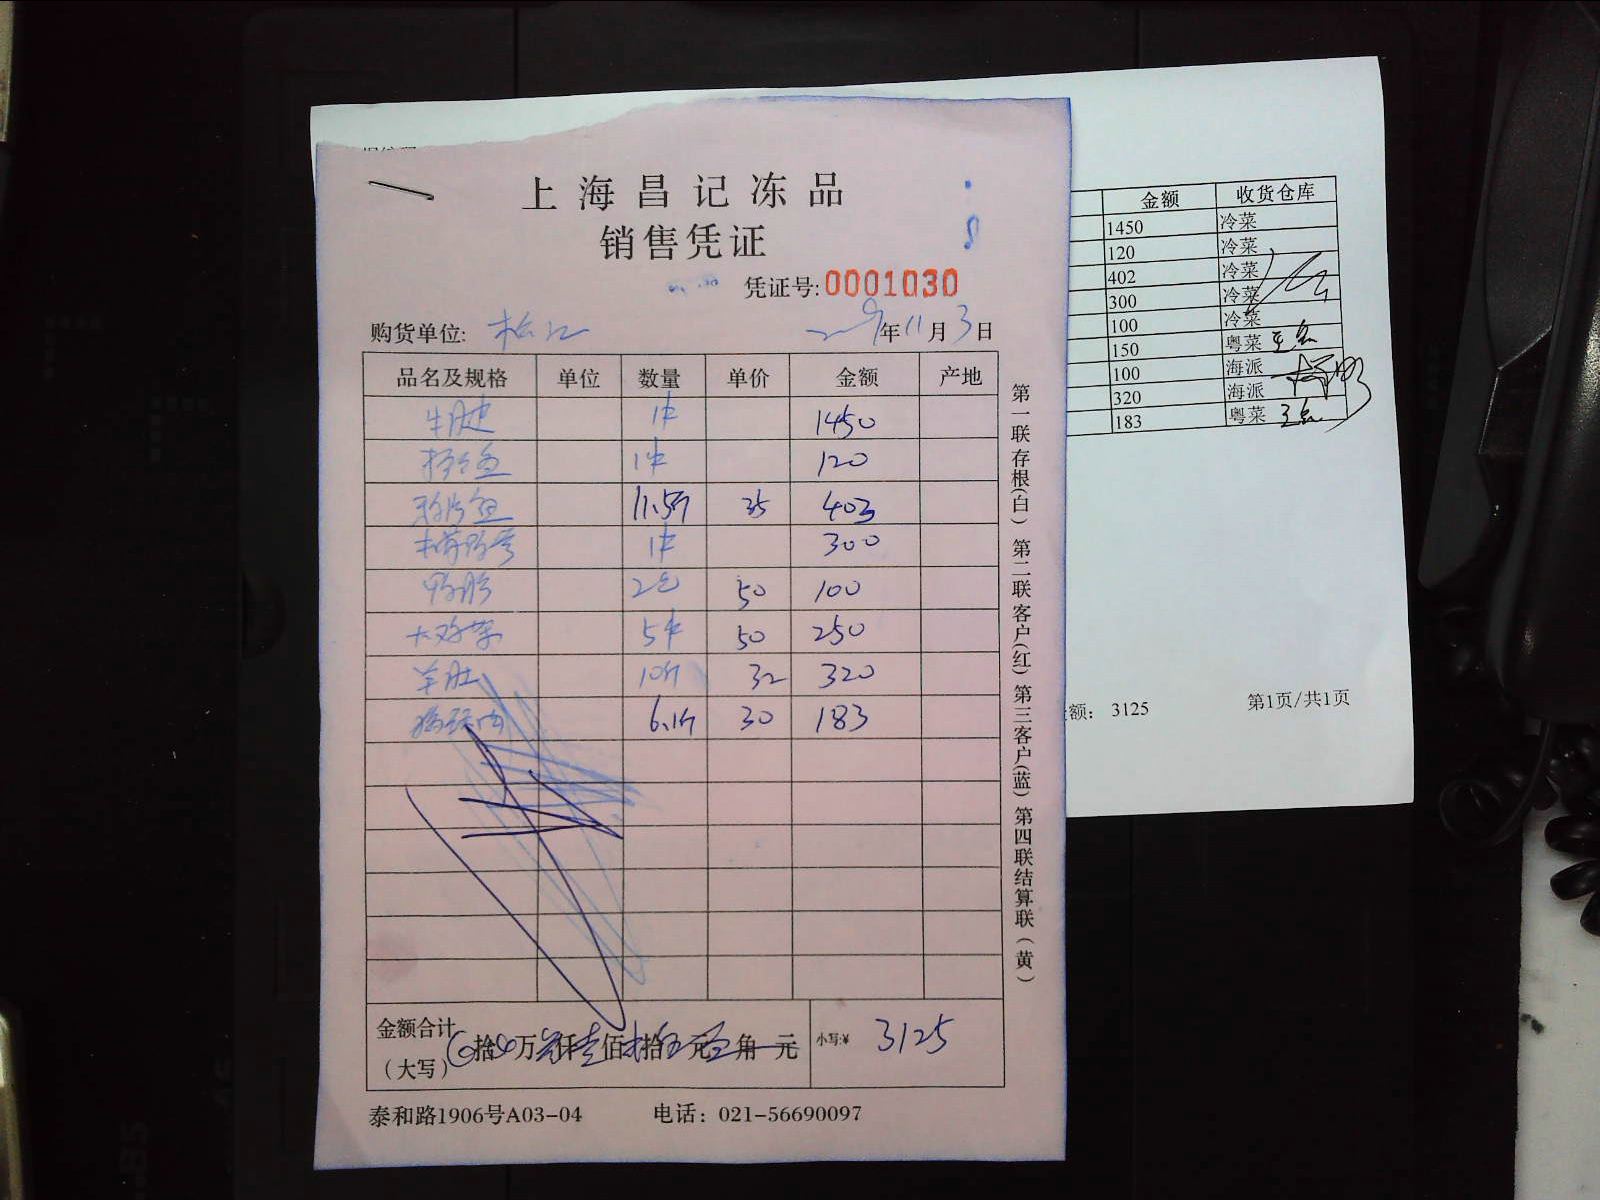 上海昌记冻品
销售凭证
凭证号:0001030
购货单位: 松江 年11月3日
品名及规格 单位 数量 单价 金额 产地
牛腱 1件 1450
1件 120
11.5斤 35 403
1件 300
2包 50 100
5件 50 250
羊肚 10斤 32 320
6.1斤 30 183
金额合计
(大写)
拾 万 仟 佰 拾 元 角 元
小写:¥ 3125
泰和路1906号A03-04 电话: 021-56690097
第一联存根(白) 第二联客户(红) 第三客户(蓝) 第四联结算联(黄)
金额 收货仓库
1450 冷菜
120 冷菜
402 冷菜
300 冷菜
100 冷菜
150 粤菜
100 海派
320 海派
183 粤菜
额: 3125 第1页/共1页